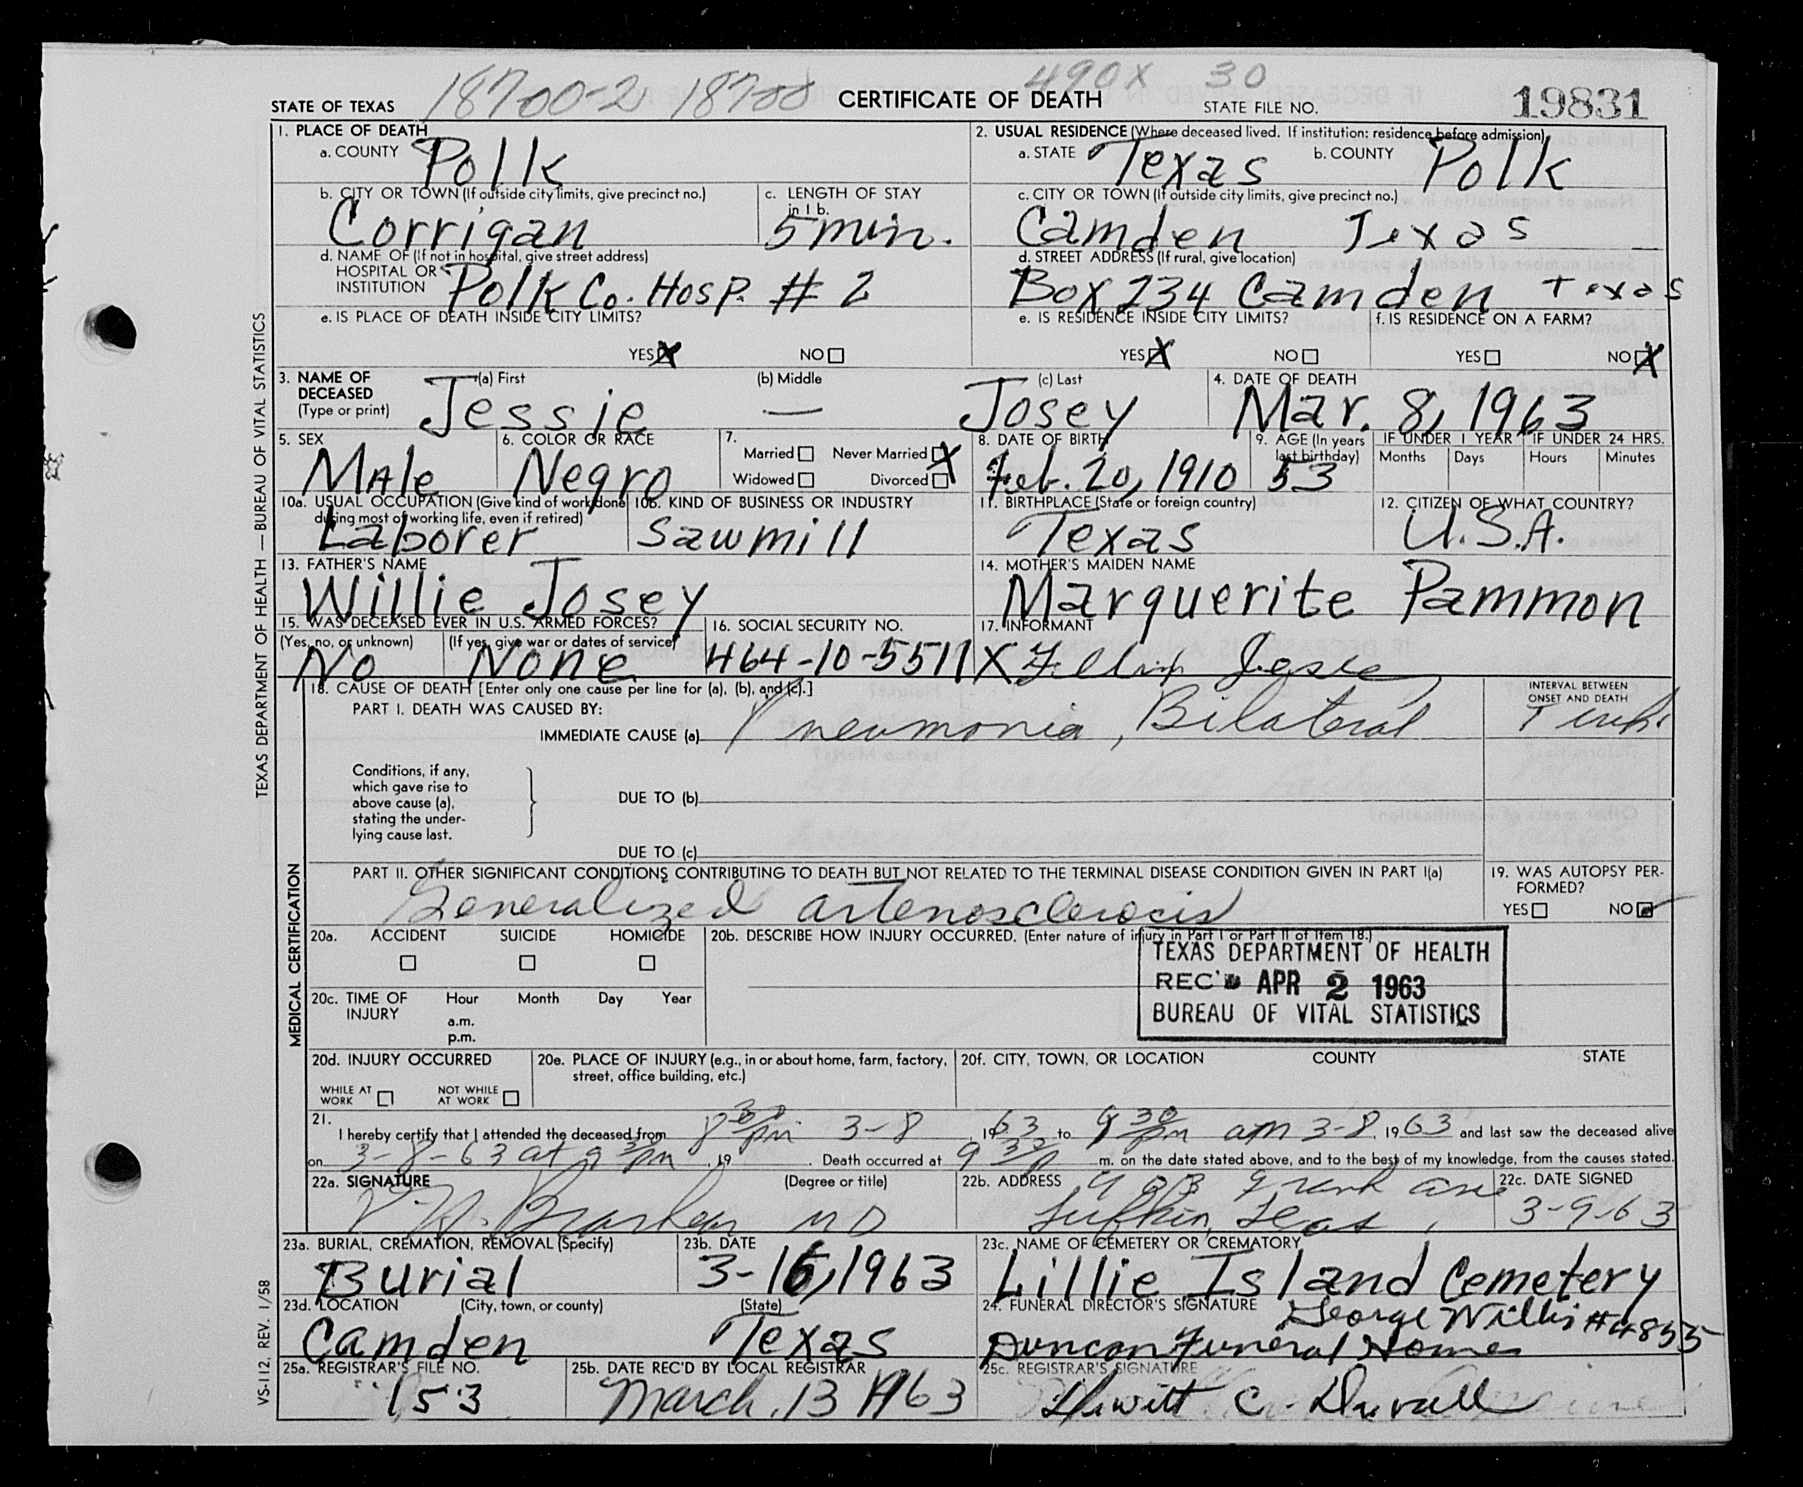 18700-2 18700 490X 30
STATE OF TEXAS CERTIFICATE OF DEATH STATE FILE NO. 19831
1. PLACE OF DEATH
a. COUNTY Polk
2. USUAL RESIDENCE (Where deceased lived. If institution: residence before admission)
a. STATE Texas b. COUNTY Polk
b. CITY OR TOWN (If outside city limits, give precinct no.) Corrigan
c. LENGTH OF STAY in 1 b. 5 min.
c. CITY OR TOWN (If outside city limits, give precinct no.) Camden Texas
d. NAME OF (If not in hospital, give street address) HOSPITAL OR INSTITUTION Polk Co. Hosp. # 2
d. STREET ADDRESS (If rural, give location) Box 234 Camden Texas
e. IS PLACE OF DEATH INSIDE CITY LIMITS? YES X NO
e. IS RESIDENCE INSIDE CITY LIMITS? YES X NO
f. IS RESIDENCE ON A FARM? YES NO X
3. NAME OF DECEASED (Type or print) (a) First Jessie (b) Middle — (c) Last Josey
4. DATE OF DEATH Mar. 8, 1963
5. SEX Male
6. COLOR OR RACE Negro
7. Married Never Married X Widowed Divorced
8. DATE OF BIRTH Feb. 20, 1910
9. AGE (In years last birthday) 53
IF UNDER 1 YEAR Months Days
IF UNDER 24 HRS. Hours Minutes
10a. USUAL OCCUPATION (Give kind of work done during most of working life, even if retired) Laborer
10b. KIND OF BUSINESS OR INDUSTRY Sawmill
11. BIRTHPLACE (State or foreign country) Texas
12. CITIZEN OF WHAT COUNTRY? U.S.A.
13. FATHER'S NAME Willie Josey
14. MOTHER'S MAIDEN NAME Marguerite Pammon
15. WAS DECEASED EVER IN U.S. ARMED FORCES?
(Yes, no, or unknown) No (If yes, give war or dates of service) None
16. SOCIAL SECURITY NO. 464-10-5511
17. INFORMANT X
18. CAUSE OF DEATH [Enter only one cause per line for (a), (b), and (c).]
PART I. DEATH WAS CAUSED BY:
IMMEDIATE CAUSE (a) Pneumonia, Bilateral
INTERVAL BETWEEN ONSET AND DEATH
Conditions, if any, which gave rise to above cause (a), stating the underlying cause last.
DUE TO (b)
DUE TO (c)
PART II. OTHER SIGNIFICANT CONDITIONS CONTRIBUTING TO DEATH BUT NOT RELATED TO THE TERMINAL DISEASE CONDITION GIVEN IN PART I(a)
Generalized arteriosclerosis
19. WAS AUTOPSY PERFORMED? YES NO
20a. ACCIDENT SUICIDE HOMICIDE
20b. DESCRIBE HOW INJURY OCCURRED. (Enter nature of injury in Part I or Part II of Item 18.)
TEXAS DEPARTMENT OF HEALTH
REC'D APR 2 1963
BUREAU OF VITAL STATISTICS
20c. TIME OF INJURY Hour Month Day Year
a.m.
p.m.
20d. INJURY OCCURRED WHILE AT WORK NOT WHILE AT WORK
20e. PLACE OF INJURY (e.g., in or about home, farm, factory, street, office building, etc.)
20f. CITY, TOWN, OR LOCATION COUNTY STATE
21. I hereby certify that I attended the deceased from 8 30 pm 3-8 1963 to 9 30 pm 3-8, 1963 and last saw the deceased alive
on 3-8-63 at 9 pm, 19 . Death occurred at 9 m. on the date stated above, and to the best of my knowledge, from the causes stated.
22a. SIGNATURE (Degree or title) MD
22b. ADDRESS Lufkin, Texas
22c. DATE SIGNED 3-9-63
23a. BURIAL, CREMATION, REMOVAL (Specify) Burial
23b. DATE 3-16, 1963
23c. NAME OF CEMETERY OR CREMATORY Lillie Island Cemetery
23d. LOCATION (City, town, or county) (State) Camden Texas
24. FUNERAL DIRECTOR'S SIGNATURE George Willis #4835
Duncan Funeral Home
25a. REGISTRAR'S FILE NO. 153
25b. DATE REC'D BY LOCAL REGISTRAR March, 13 1963
25c. REGISTRAR'S SIGNATURE C. Duvall
TEXAS DEPARTMENT OF HEALTH — BUREAU OF VITAL STATISTICS
MEDICAL CERTIFICATION
VS-112, REV. 1/58